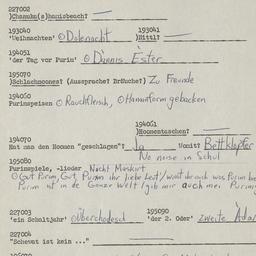 227002
)Chanuka(s)hanisbeach?
193040 193041
'Weihnachten' Dolenacht )Nittl?
194051
'der Tag vor Purim' Daenis Ester
195070
)Schlachmones? (Aussprache? Bräuche?) Zu Freunde
194060
Purimspeisen Rauchfleisch, Hamanform gebacken
194061
)Homentaschen?
194070
Hat man den Homen "geschlagen"? Ja Womit? Bettklopfer
No noise in Schul
195080
Purimspiele, -lieder Nacht Maskiert
Gut Purim, Gut Purim ihr liebe Leit / wont ihr
Purim ist in de Ganze Welt / gib mir auch mei Purim
227003 195090
'ein Schaltjahr' Überchodesch 'der 2. Oder' zweite Adar
227004
"Schevat ist kein ..."